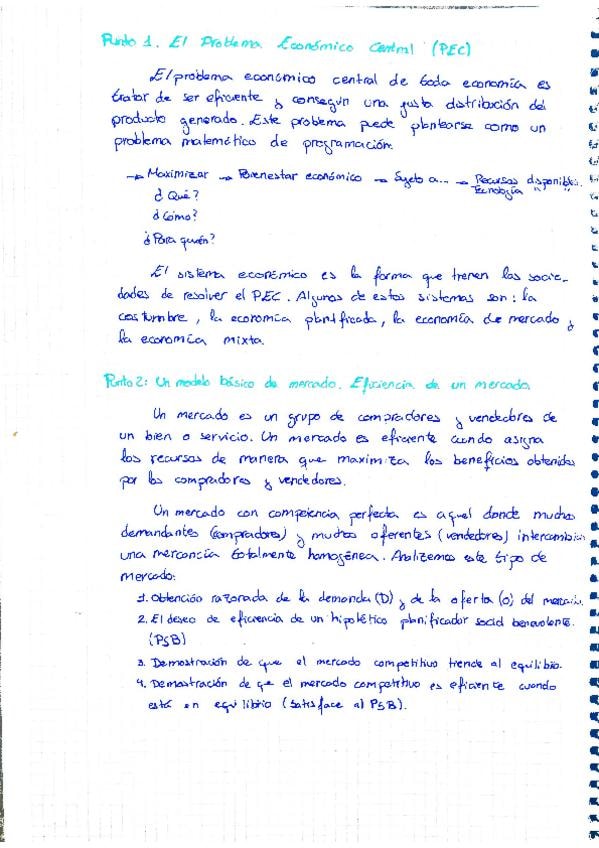 Punto 1. El Problema Económico Central (PEC)
El problema económico central de toda economía es
tratar de ser eficiente y conseguir una justa distribución del
producto generado. Este problema puede plantearse como un
problema matemático de programación.
→ Maximizar → Bienestar económico → Sujeto a... → Recursos disponibles.
Tecnología " "
¿Qué?
¿Cómo?
¿Para quién?
El sistema económico es la forma que tienen las socie-
dades de resolver el PEC. Algunos de estos sistemas son: la
costumbre, la economía planificada, la economía de mercado y
la economía mixta.
Punto 2: Un modelo básico de mercado. Eficiencia de un mercado.
Un mercado es un grupo de compradores y vendedores de
un bien o servicio. Un mercado es eficiente cuando asigna
los recursos de manera que maximiza los beneficios obtenidos
por los compradores y vendedores.
Un mercado con competencia perfecta es aquel donde muchos
demandantes (compradores) y muchos oferentes (vendedores) intercambian
una mercancía totalmente homogénea. Analizemos este tipo de
mercado:
1. Obtención razonada de la demanda (D) y de la oferta (O) del mercado.
2. El deseo de eficiencia de un hipotético planificador social benevolente.
(PSB)
3. Demostración de que el mercado competitivo tiende al equilibrio.
4. Demostración de que el mercado competitivo es eficiente cuando
está en equilibrio (satisface al PSB).